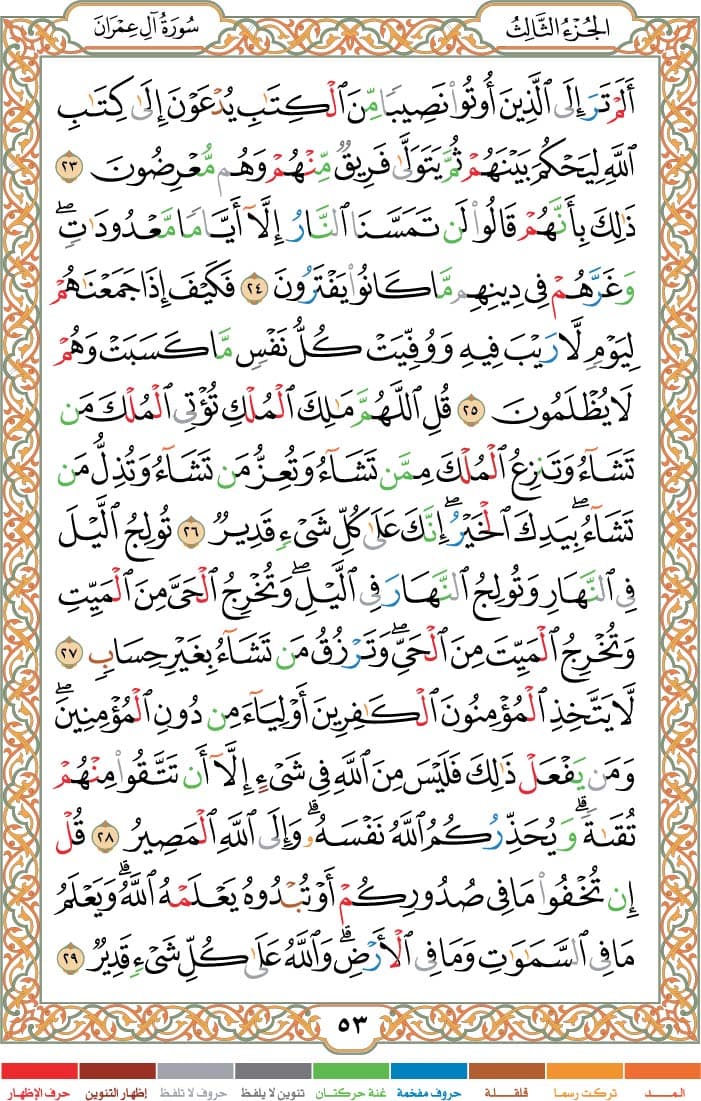 الجُزْءُ الثَّالِثُ
سُورَةُ آلِ عِمْرَانَ
أَلَمْ تَرَ إِلَى ٱلَّذِينَ أُوتُوا۟ نَصِيبًا مِّنَ ٱلْكِتَٰبِ يُدْعَوْنَ إِلَىٰ كِتَٰبِ
ٱللَّهِ لِيَحْكُمَ بَيْنَهُمْ ثُمَّ يَتَوَلَّىٰ فَرِيقٌ مِّنْهُمْ وَهُم مُّعْرِضُونَ ٢٣
ذَٰلِكَ بِأَنَّهُمْ قَالُوا۟ لَن تَمَسَّنَا ٱلنَّارُ إِلَّآ أَيَّامًا مَّعْدُودَٰتٍ ۖ
وَغَرَّهُمْ فِى دِينِهِم مَّا كَانُوا۟ يَفْتَرُونَ ٢٤ فَكَيْفَ إِذَا جَمَعْنَٰهُمْ
لِيَوْمٍ لَّا رَيْبَ فِيهِ وَوُفِّيَتْ كُلُّ نَفْسٍ مَّا كَسَبَتْ وَهُمْ
لَا يُظْلَمُونَ ٢٥ قُلِ ٱللَّهُمَّ مَٰلِكَ ٱلْمُلْكِ تُؤْتِى ٱلْمُلْكَ مَن
تَشَآءُ وَتَنزِعُ ٱلْمُلْكَ مِمَّن تَشَآءُ وَتُعِزُّ مَن تَشَآءُ وَتُذِلُّ مَن
تَشَآءُ ۖ بِيَدِكَ ٱلْخَيْرُ ۖ إِنَّكَ عَلَىٰ كُلِّ شَىْءٍ قَدِيرٌ ٢٦ تُولِجُ ٱلَّيْلَ
فِى ٱلنَّهَارِ وَتُولِجُ ٱلنَّهَارَ فِى ٱلَّيْلِ ۖ وَتُخْرِجُ ٱلْحَىَّ مِنَ ٱلْمَيِّتِ
وَتُخْرِجُ ٱلْمَيِّتَ مِنَ ٱلْحَىِّ ۖ وَتَرْزُقُ مَن تَشَآءُ بِغَيْرِ حِسَابٍ ٢٧
لَّا يَتَّخِذِ ٱلْمُؤْمِنُونَ ٱلْكَٰفِرِينَ أَوْلِيَآءَ مِن دُونِ ٱلْمُؤْمِنِينَ ۖ
وَمَن يَفْعَلْ ذَٰلِكَ فَلَيْسَ مِنَ ٱللَّهِ فِى شَىْءٍ إِلَّآ أَن تَتَّقُوا۟ مِنْهُمْ
تُقَىٰةً ۗ وَيُحَذِّرُكُمُ ٱللَّهُ نَفْسَهُۥ ۗ وَإِلَى ٱللَّهِ ٱلْمَصِيرُ ٢٨ قُلْ
إِن تُخْفُوا۟ مَا فِى صُدُورِكُمْ أَوْ تُبْدُوهُ يَعْلَمْهُ ٱللَّهُ ۗ وَيَعْلَمُ
مَا فِى ٱلسَّمَٰوَٰتِ وَمَا فِى ٱلْأَرْضِ ۗ وَٱللَّهُ عَلَىٰ كُلِّ شَىْءٍ قَدِيرٌ ٢٩
٥٣
المـــد تركت رسما قلقـــلة حروف مفخمة غنة حركتان تنوين لا يلفظ حروف لا تلفظ إظهار التنوين حرف الإظهار